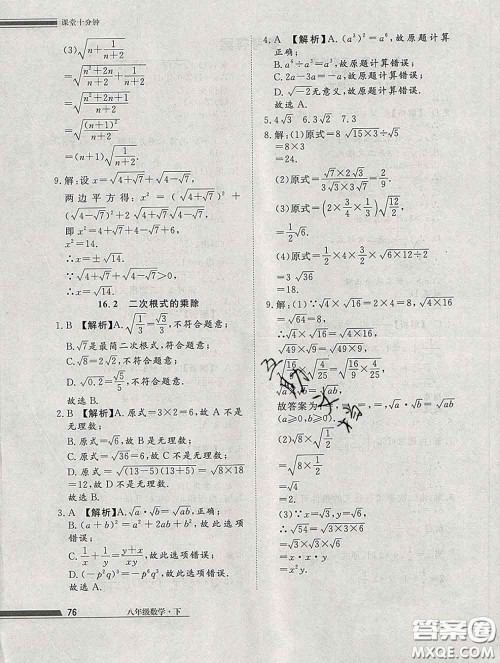 课堂十分钟
(3)√(n+1/(n+2))
=√((n²+2n)/(n+2)+1/(n+2))
=√((n²+2n+1)/(n+2))
=√((n+1)²/(n+2))
=(n+1)√(1/(n+2)).
9.解:设x=√(4+√7)+√(4-√7),
两边平方得:x²=(√(4+√7))²+
(√(4-√7))²+2√(4+√7)·√(4-√7),
即x²=4+√7+4-√7+6,
x²=14.
∴x=±√14.
∵√(4+√7)+√(4-√7)>0,
∴x=√14.
16.2 二次根式的乘除
1.B 【解析】A.√(1/3)=√3/3,不符合题意;
B.√7是最简二次根式,符合题意;
C.√8=2√2,不符合题意;
D.√0.2=√5/5,不符合题意.
故选B.
2.B 【解析】A.原式=3×2=6,故A不是
无理数;
B.原式=√6,故B是无理数;
C.原式=√36=6,故C不是无理数;
D.原式=√((13-5)(13+5))=√(8×18)
=12,故D不是无理数.
故选B.
3.A 【解析】A.√a·√a=a,故此选项正确;
B.(a+b)²=a²+b²+2ab,故此选项
错误;
C.1/x+1/y=(y+x)/xy,故此选项错误;
D.(-p²q)³=-p⁶q³,故此选项错误.
故选A.
4.A 【解析】A.(a³)²=a⁶,故原题计算
正确;
B.a⁶÷a³=a³,故原题计算错误;
C.2a-3a=-a,故原题计算错误;
D.√-2无意义,故原题计算错误;
故选A.
5.4√3 6.3√2 7.3
8.解:(1)原式=8√(15×3÷5)
=8×3
=24.
(2)原式=√(7×2√3)/(3√(7×3))=2/9.
(3)原式=(2×3/4×1/3)√(12/2)
=1/2√6.
(4)原式=3×1/4×√(6×36÷12)
=3/4√18
9.解:(1)∵√4×√16=8,√(4×16)
=√64=8,
∴√4×√16=√(4×16),
√49×√9=√(49×9),
√(16/9)×√(4/25)=√(16/9×4/25),
∴√a×√b=√ab,
=,=,√a·√b=√ab
(a≥0,b≥0).
(2)√8×√(1/2)
=√(8×1/2)
=√4
=2.
(3)∵x=√3,y=√6,
∴√54=√(3×3×6)
=√3×√3×√6
=x·x·y
=x²y.
76 八年级数学·下
答案圈
MXQE.COM